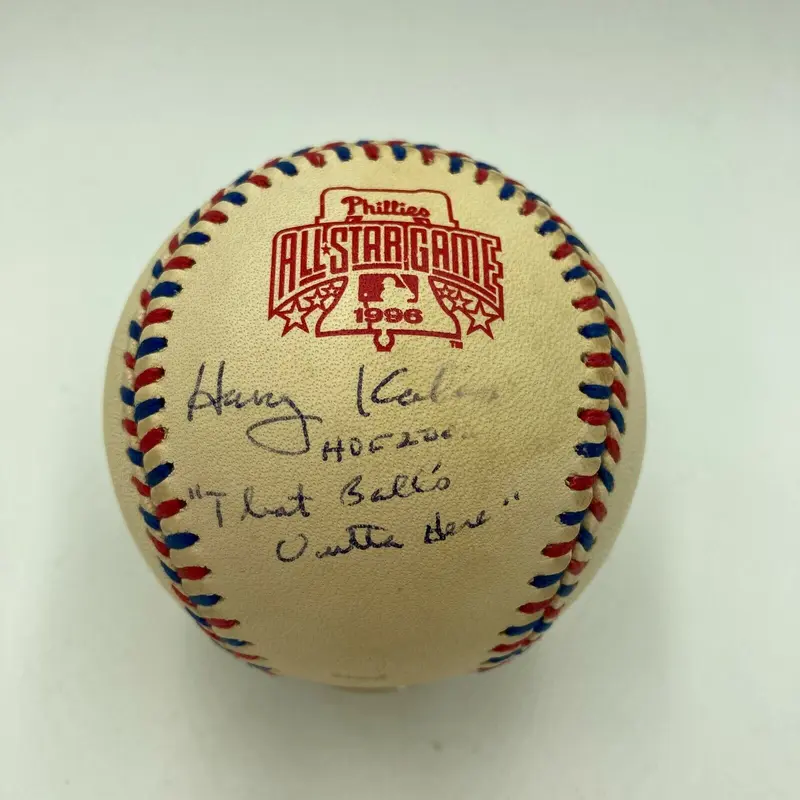 Phillies
ALL STAR GAME
1996
TM
Harry Kalas
HOF 200
"That Ball's
Outta Here"